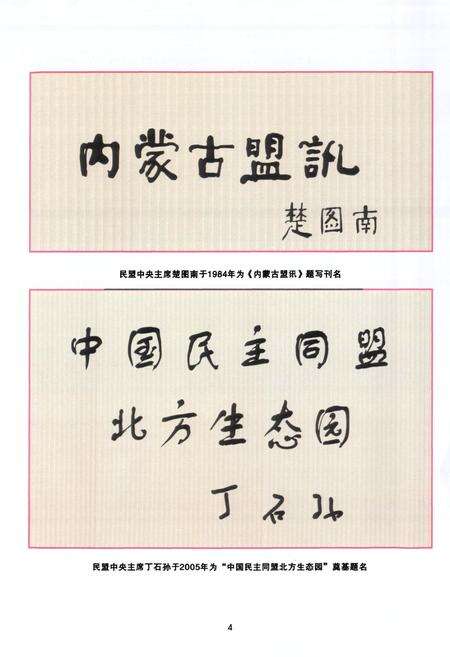 内蒙古盟訊
楚图南
民盟中央主席楚图南于1984年为《内蒙古盟讯》题写刊名
中国民主同盟
北方生态园
丁石孙
民盟中央主席丁石孙于2005年为“中国民主同盟北方生态园”奠基题名
4